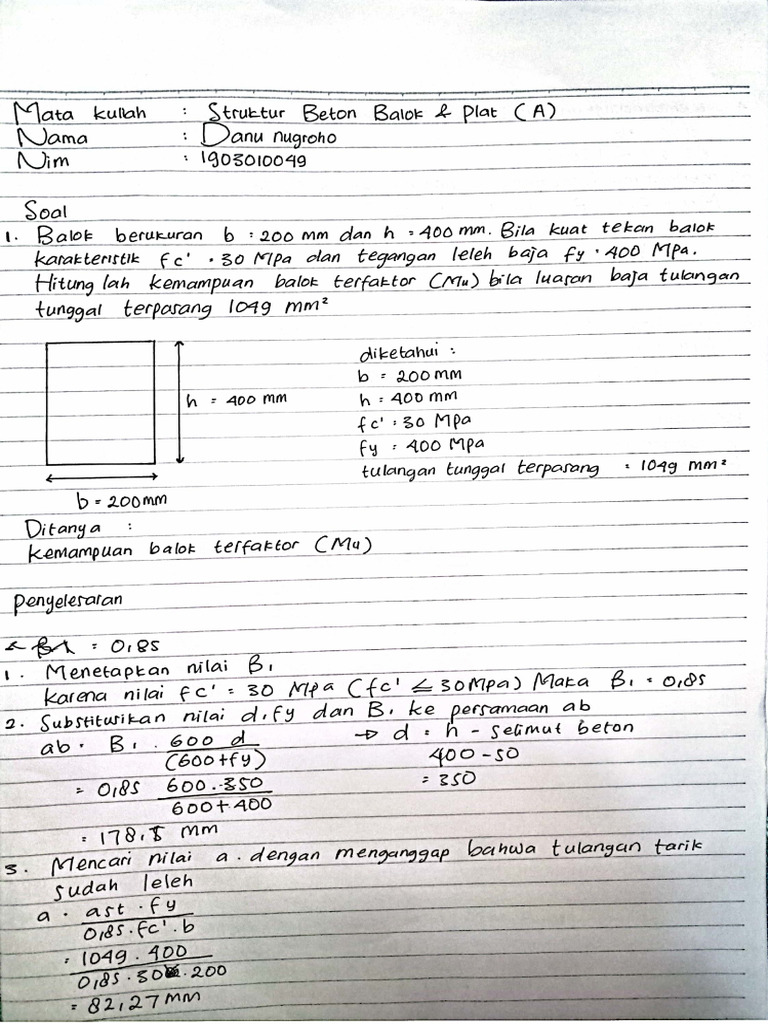 Mata kuliah : Struktur Beton Balok & Plat (A)
Nama : Danu nugroho
Nim : 1903010049
Soal
1. Balok berukuran b = 200 mm dan h = 400 mm. Bila kuat tekan balok
karakteristik fc' = 30 MPa dan tegangan leleh baja fy = 400 MPa.
Hitung lah kemampuan balok terfaktor (Mu) bila luasan baja tulangan
tunggal terpasang 1049 mm²
h = 400 mm
b = 200mm
diketahui :
b = 200 mm
h = 400 mm
fc' = 30 MPa
fy = 400 MPa
tulangan tunggal terpasang = 1049 mm²
Ditanya :
Kemampuan balok terfaktor (Mu)
Penyelesaian
= 0,85
1. Menetapkan nilai B1
karena nilai fc' = 30 MPa (fc' ≤ 30MPa) Maka B1 = 0,85
2. Substitusikan nilai d, fy dan B1 ke persamaan ab
ab = B1 . 600 d / (600+fy)
→ d = h - selimut beton
400 - 50
= 350
= 0,85 600 . 350 / 600 + 400
= 178,5 mm
3. Mencari nilai a. dengan menganggap bahwa tulangan tarik
sudah leleh
a = ast . fy / 0,85 . fc' . b
= 1049 . 400 / 0,85 . 30 . 200
= 82,27 mm